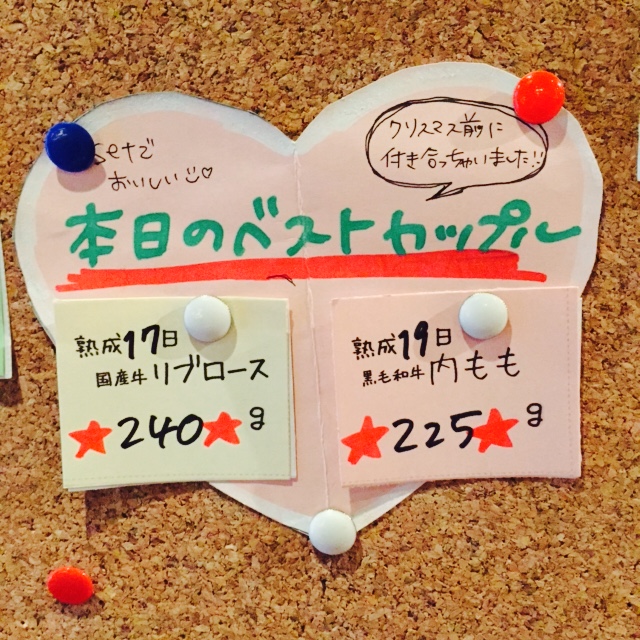 setで
おいしい♡
クリスマス前に
付き合っちゃいました!!
本日のベストカップル
熟成17日
国産牛リブロース
★240★g
熟成19日
黒毛和牛内もも
★225★g